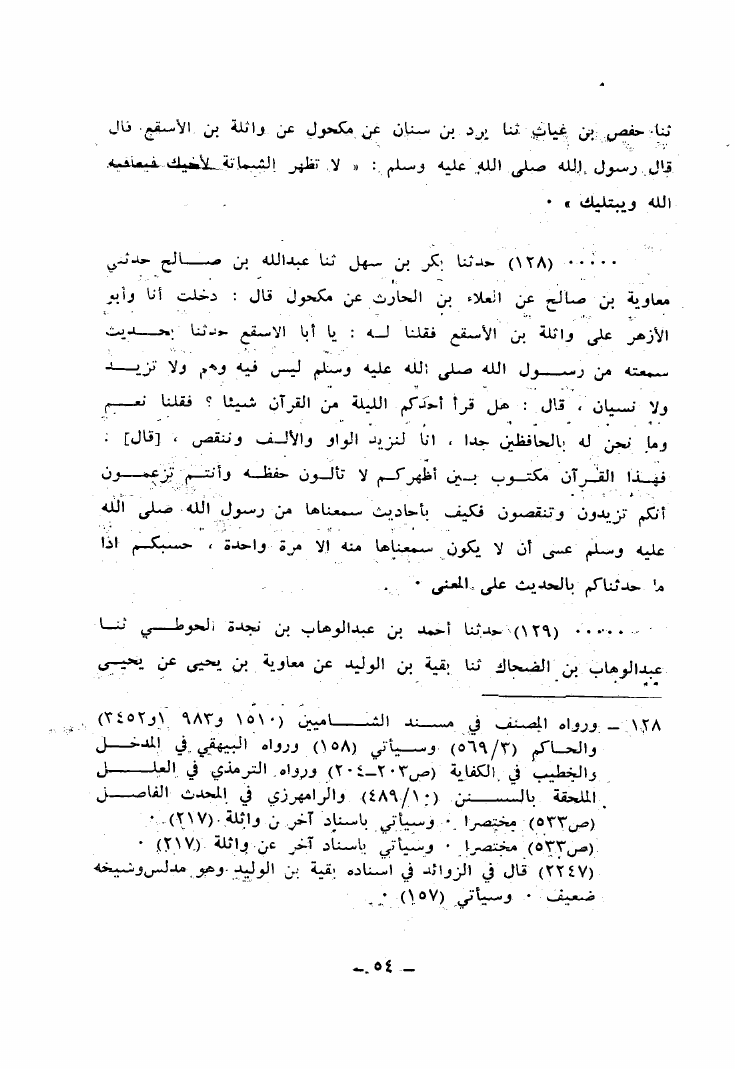 ثنا حفص بن غياث ثنا برد بن سنان عن مكحول عن واثلة بن الأسقع قال
قال رسول الله صلى الله عليه وسلم : « لا تظهر الشماتة لأخيك فيعافيه
الله ويبتليك » ٠
٠٠٠٠٠ (١٢٨) حدثنا بكر بن سهل ثنا عبدالله بن صالح حدثني
معاوية بن صالح عن العلاء بن الحارث عن مكحول قال : دخلت أنا وأبو
الأزهر على واثلة بن الأسقع فقلنا له : يا أبا الاسقع حدثنا بحديث
سمعته من رسول الله صلى الله عليه وسلم ليس فيه وهم ولا تزيد
ولا نسيان ، قال : هل قرأ أحدكم الليلة من القرآن شيئا ؟ فقلنا نعم
وما نحن له بالحافظين جدا ، انا لنزيد الواو والألف وننقص ، [قال] :
فهذا القرآن مكتوب بين أظهركم لا تألون حفظه وأنتم تزعمون
أنكم تزيدون وتنقصون فكيف بأحاديث سمعناها من رسول الله صلى الله
عليه وسلم عسى أن لا يكون سمعناها منه إلا مرة واحدة ، حسبكم اذا
ما حدثناكم بالحديث على المعنى ٠
٠٠٠٠٠ (١٢٩) حدثنا أحمد بن عبدالوهاب بن نجدة الحوطي ثنا
عبدالوهاب بن الضحاك ثنا بقية بن الوليد عن معاوية بن يحيى عن يحيى
١٢٨ – ورواه المصنف في مسند الشاميين (١٥١٠ و٩٨٣ و٣٤٥٢)
والحاكم (٥٦٩/٣) وسيأتي (١٥٨) ورواه البيهقي في المدخل
والخطيب في الكفاية (ص٢٠٣–٢٠٤) ورواه الترمذي في العلل
الملحقة بالسنن (٤٨٩/١٠) والرامهرزي في المحدث الفاصل
(ص٥٣٣) مختصرا ٠ وسيأتي باسناد آخر ن واثلة (٢١٧) ٠
(ص٥٣٣) مختصرا ٠ وسيأتي باسناد آخر عن واثلة (٢١٧) ٠
(٢٢٤٧) قال في الزوائد في اسناده بقية بن الوليد وهو مدلس وشيخه
ضعيف ٠ وسيأتي (١٥٧) ٠
– ٥٤ –